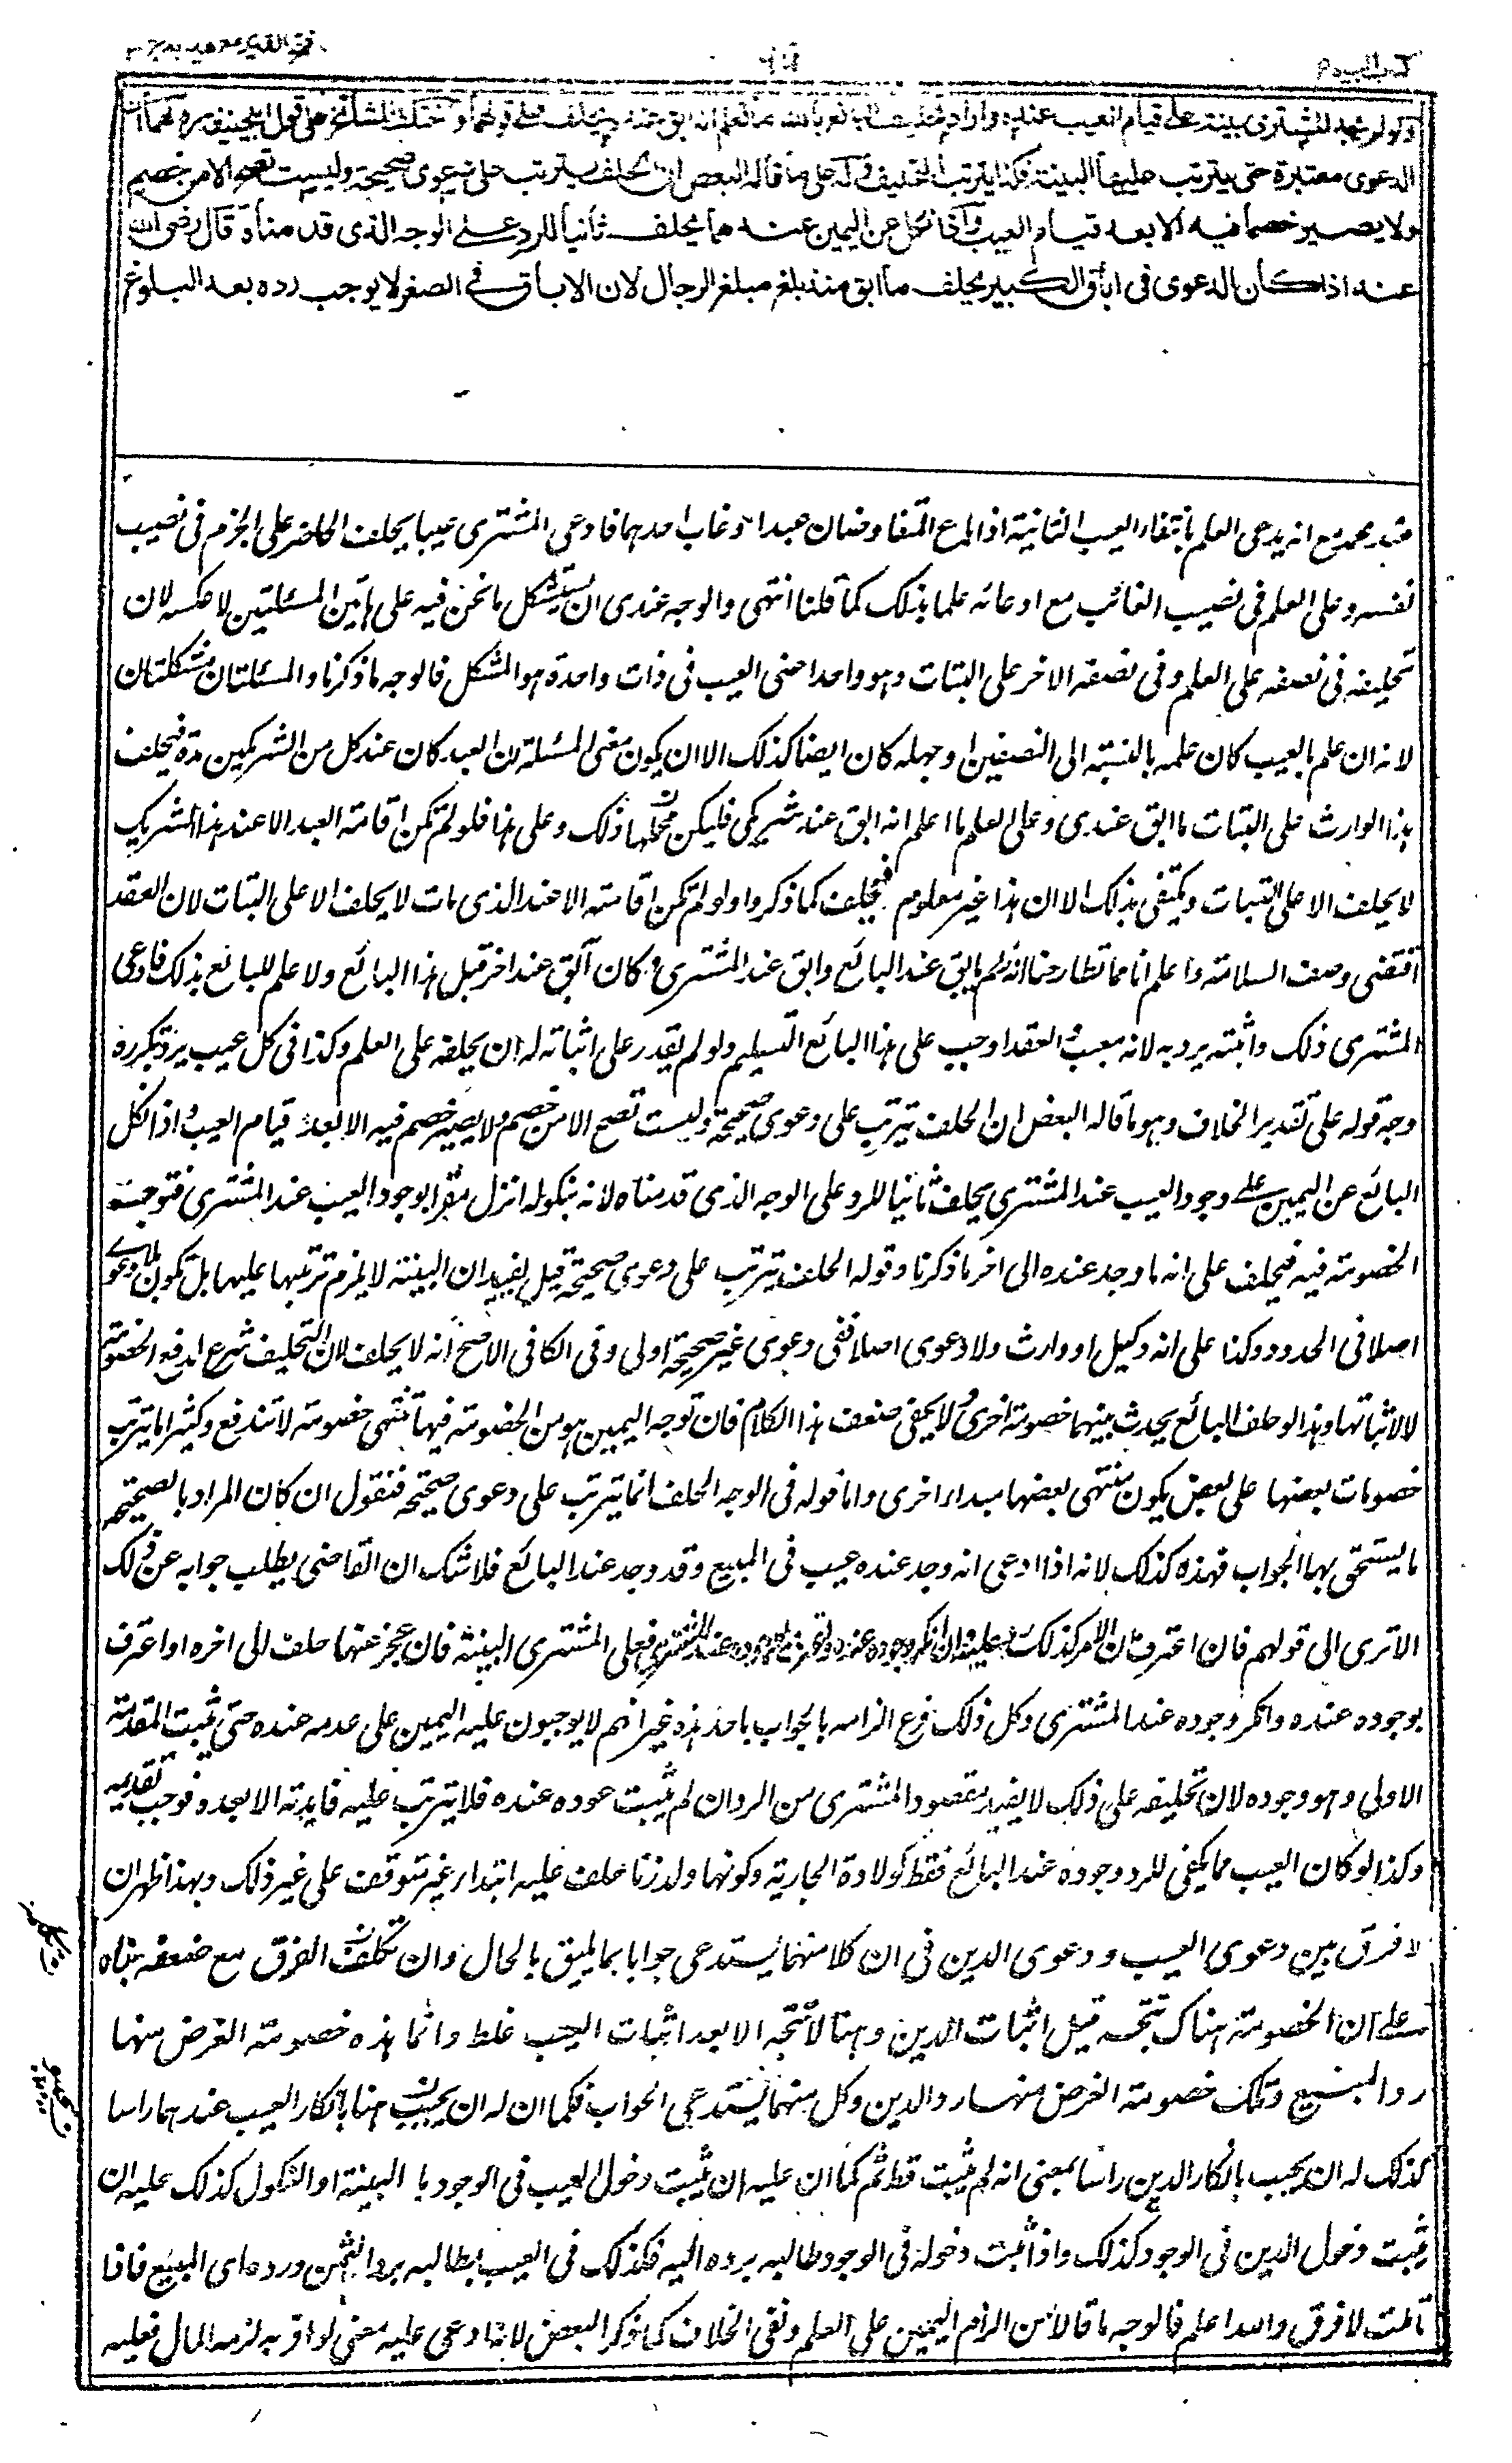 كتاب البيوع
فتح القدير مع هداية ج ٣
ولو لم يجد المشترى بينة على قيام العيب عنده وأراد تحليف البائع بالله ما تعلم انه ابق عنده يحلف على قولهما واختلف المشائخ على قول ابى حنيفة رح لهما ان
الدعوى معتبرة حتى يترتب عليها البينة فكذا يترتب التحليف وله على ما قاله البعض ان الحلف يترتب على دعوى صحيحة وليست تصح الا من خصم
ولا يصير خصما فيه الا بعد قيام العيب واذا نكل عن اليمين عندهما يحلف ثانيا للرد على الوجه الذى قدمناه قال رضى الله
عنه اذا كان الدعوى فى اباق الكبير يحلف ما ابق منذ بلغ مبلغ الرجال لان الاباق فى الصغر لا يوجب رده بعد البلوغ
مع انه يدعى العلم بانتفاء العيب الثانية اذا باع المتفاوضان عبدا وغاب احدهما فادعى المشترى عيبا يحلف الحاضر على الجزم فى نصيب
نفسه وعلى العلم فى نصيب الغائب مع ادعائه علما بذلك كما قلنا انتهى والوجه عندى ان يستشكل ما نحن فيه على هاتين المسئلتين لا عكسه لان
تحليفه فى نصفه على العلم وفى نصفه الاخر على البتات وهو واحد اعنى العيب فى ذات واحدة هو المشكل فالوجه ما ذكرنا والمسئلتان مشكلتان
لانه ان علم بالعيب كان علمه بالنسبة الى النصفين او جهله كان ايضا كذلك الا ان يكون معنى المسئلة ان العبد كان عند كل من الشريكين مدة فيحلف
هذا الوارث على البتات ما ابق عندى وعلى العلم ما اعلم انه ابق عند شريكى فليكن محلها ذلك وعلى هذا فلو لم تكن اقامة العبد الا عند هذا الشريك
لا يحلف الا على البتات ويكتفى بذلك الا ان هذا غير معلوم فيحلف كما ذكروا ولو لم تكن اقامته الا عند الذى مات لا يحلف الا على البتات لان العقد
اقتضى وصف السلامة واعلم انا مما تطارحنا انه لو لم يابق عند البائع وابق عند المشترى وكان ابق عند اخر قبل هذا البائع ولا علم للبائع بذلك فادعى
المشترى ذلك واثبته يرد به لانه معيب والعقد اوجب على هذا البائع التسليم ولو لم يقدر على اثباته له ان يحلفه على العلم وكذا فى كل عيب يرد بتكرره
وجه قوله على تقدير الخلاف وهو ما قاله البعض ان الحلف يترتب على دعوى صحيحة وليست تصح الا من خصم ولا يصير خصم فيه الا بعد قيام العيب واذا نكل
البائع عن اليمين على وجود العيب عند المشترى يحلف ثانيا للرد على الوجه الذى قدمناه لانه بنكوله انزل مقرا بوجود العيب عند المشترى فتوجهت
الخصومة فيه فيحلف على انه ما وجد عنده الى اخر ما ذكرنا وقوله الحلف يترتب على دعوى صحيحة قيل يفيد ان البينة لا يلزم ترتبها عليها بل تكون بلا دعوى
اصلا فى الحدود وكذا على انه وكيل او وارث ولا دعوى اصلا ففى دعوى غير صحيحة اولى وفى الكافى الاصح انه لا يحلف لان التحليف شرع لدفع الخصومة
لا لاثباتها وهذا لو حلف البائع يحدث بينهما خصومة اخرى ولا يخفى ضعف هذا الكلام فان توجه اليمين هو من الخصومة فيها تنتهى خصومة لا تندفع وكثيرا ما يترتب
خصومات بعضها على بعض يكون منتهى بعضها مبدأ اخرى واما قوله فى الوجه الحلف انما يترتب على دعوى صحيحة فنقول ان كان المراد بالصحيحة
ما يستحق بها الجواب فهذه كذلك لانه اذا ادعى انه وجد عنده عيب فى المبيع وقد وجد عند البائع فلا شك ان القاضى يطلب جوابه عن ذلك
الا ترى الى قولهم فان اعترف بان الامر كذلك رد عليه وان انكر وجوده عنده واعترف بوجوده عند المشترى فعلى المشترى البينة فان عجز عنها حلف الى اخره او اعترف
بوجوده عنده وانكر وجوده عند المشترى وكل ذلك فرع الزامه بالجواب باحد هذه غير انهم لا يوجبون عليه اليمين على عدمه عنده حتى يثبت المقدمة
الاولى وهو وجوده لان تحليفه على ذلك لا يفيد مقصود المشترى من الرد ان لم يثبت عوده عنده فلا يترتب عليه فايدته الا بعده فوجب تقديمه
وكذا لو كان العيب مما يكفى للرد وجوده عند البائع فقط كولادة الجارية وكونها ولد زنا حلف عليه ابتداء غير متوقف على غير ذلك وبهذا ظهر ان
لا فرق بين دعوى العيب ودعوى الدين فى ان كلا منهما يستدعى جوابا بما يليق بالحال وان تكلف الفرق مع ضعفه بناه
على ان الخصومة هناك تتجه قبل اثبات الدين وهنا لا تتجه الا بعد اثبات العيب غلط وانما هذه خصومة الغرض منها
رد المبيع وتلك خصومة الغرض منها رد الدين وكل منهما يستدعى الجواب فكما ان له ان يجيب هنا بانكار العيب عندهما راسا
كذلك له ان يجيب بانكار الدين راسا بمعنى انه لم يثبت قط ثم كما ان عليه ان يثبت دخول العيب فى الوجود با البينة او النكول كذلك عليه ان
يثبت دخول الدين فى الوجود كذلك واذا ثبت دخوله فى الوجود طالبه برده اليه فكذلك فى العيب يطالبه برد الثمن ورد هاى المبيع فاذا
تاملت لا فرق والله اعلم فالوجه ما قالا من الزام اليمين على العلم ونفى الخلاف كما ذكر البعض لانه ادعى عليه معنى لو اقر به لزمه المال فعليه